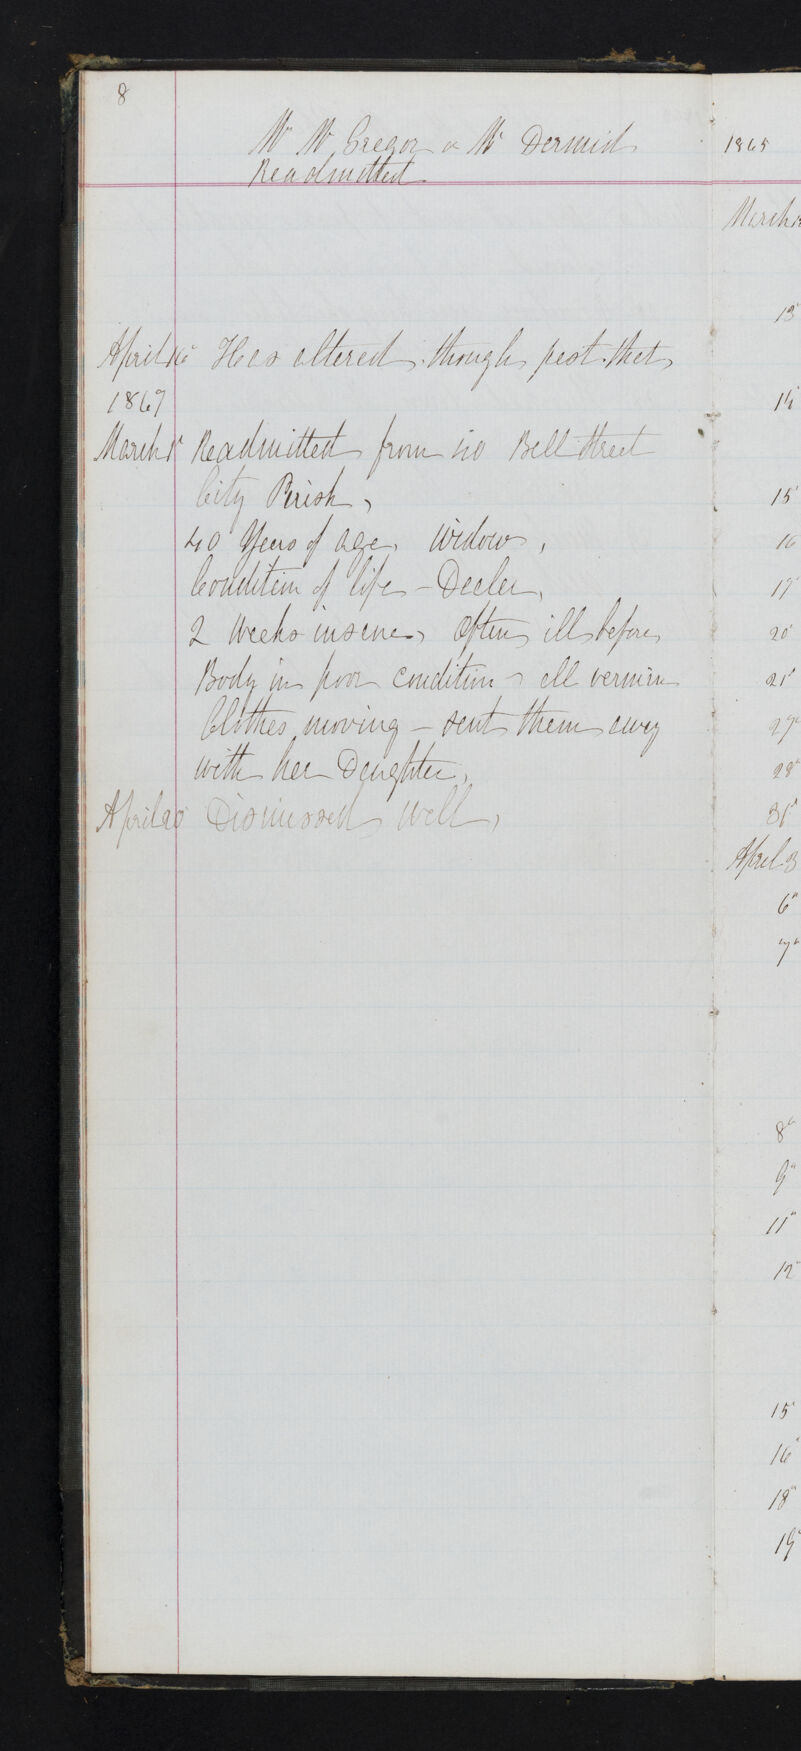 8
Mc Gregor or Mc Dermid
Readmitted
April 16 Has altered though past that
1867
March 1st Readmitted from 40 Bell Street
City Parish,
40 Years of age, Widow,
Condition of life - Dealer,
2 Weeks insane, Often ill before
Body in poor condition - all vermin
Clothes moving - sent them away
with her Daughter,
April 20 Dismissed Well,
1865
March
13
14
15
16
17
20
21
27
28
31
April 3
6
7
8
9
11
12
15
16
18
19